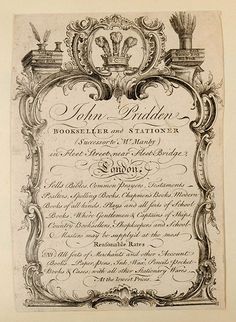 John Pridden
BOOKSELLER and STATIONER
(Successor to Mr. Manby)
in Fleet Street, near Fleet Bridge,
London:
Sells Bibles, Common Prayers, Testaments
Psalters, Spelling Books, Chapmens Books, Modern
Books of all kinds, Plays and all sorts of School
Books. Where Gentlemen & Captains of Ships,
Country Booksellers, Shopkeepers and School-
Masters may be supply'd at the most
Reasonable Rates.
NB: All sorts of Merchants and other Accompt
Books, Paper, Pens, Ink, Wax, Pencils, Pocket
Books & Cases; with all other Stationary Wares
At the lowest Prices.